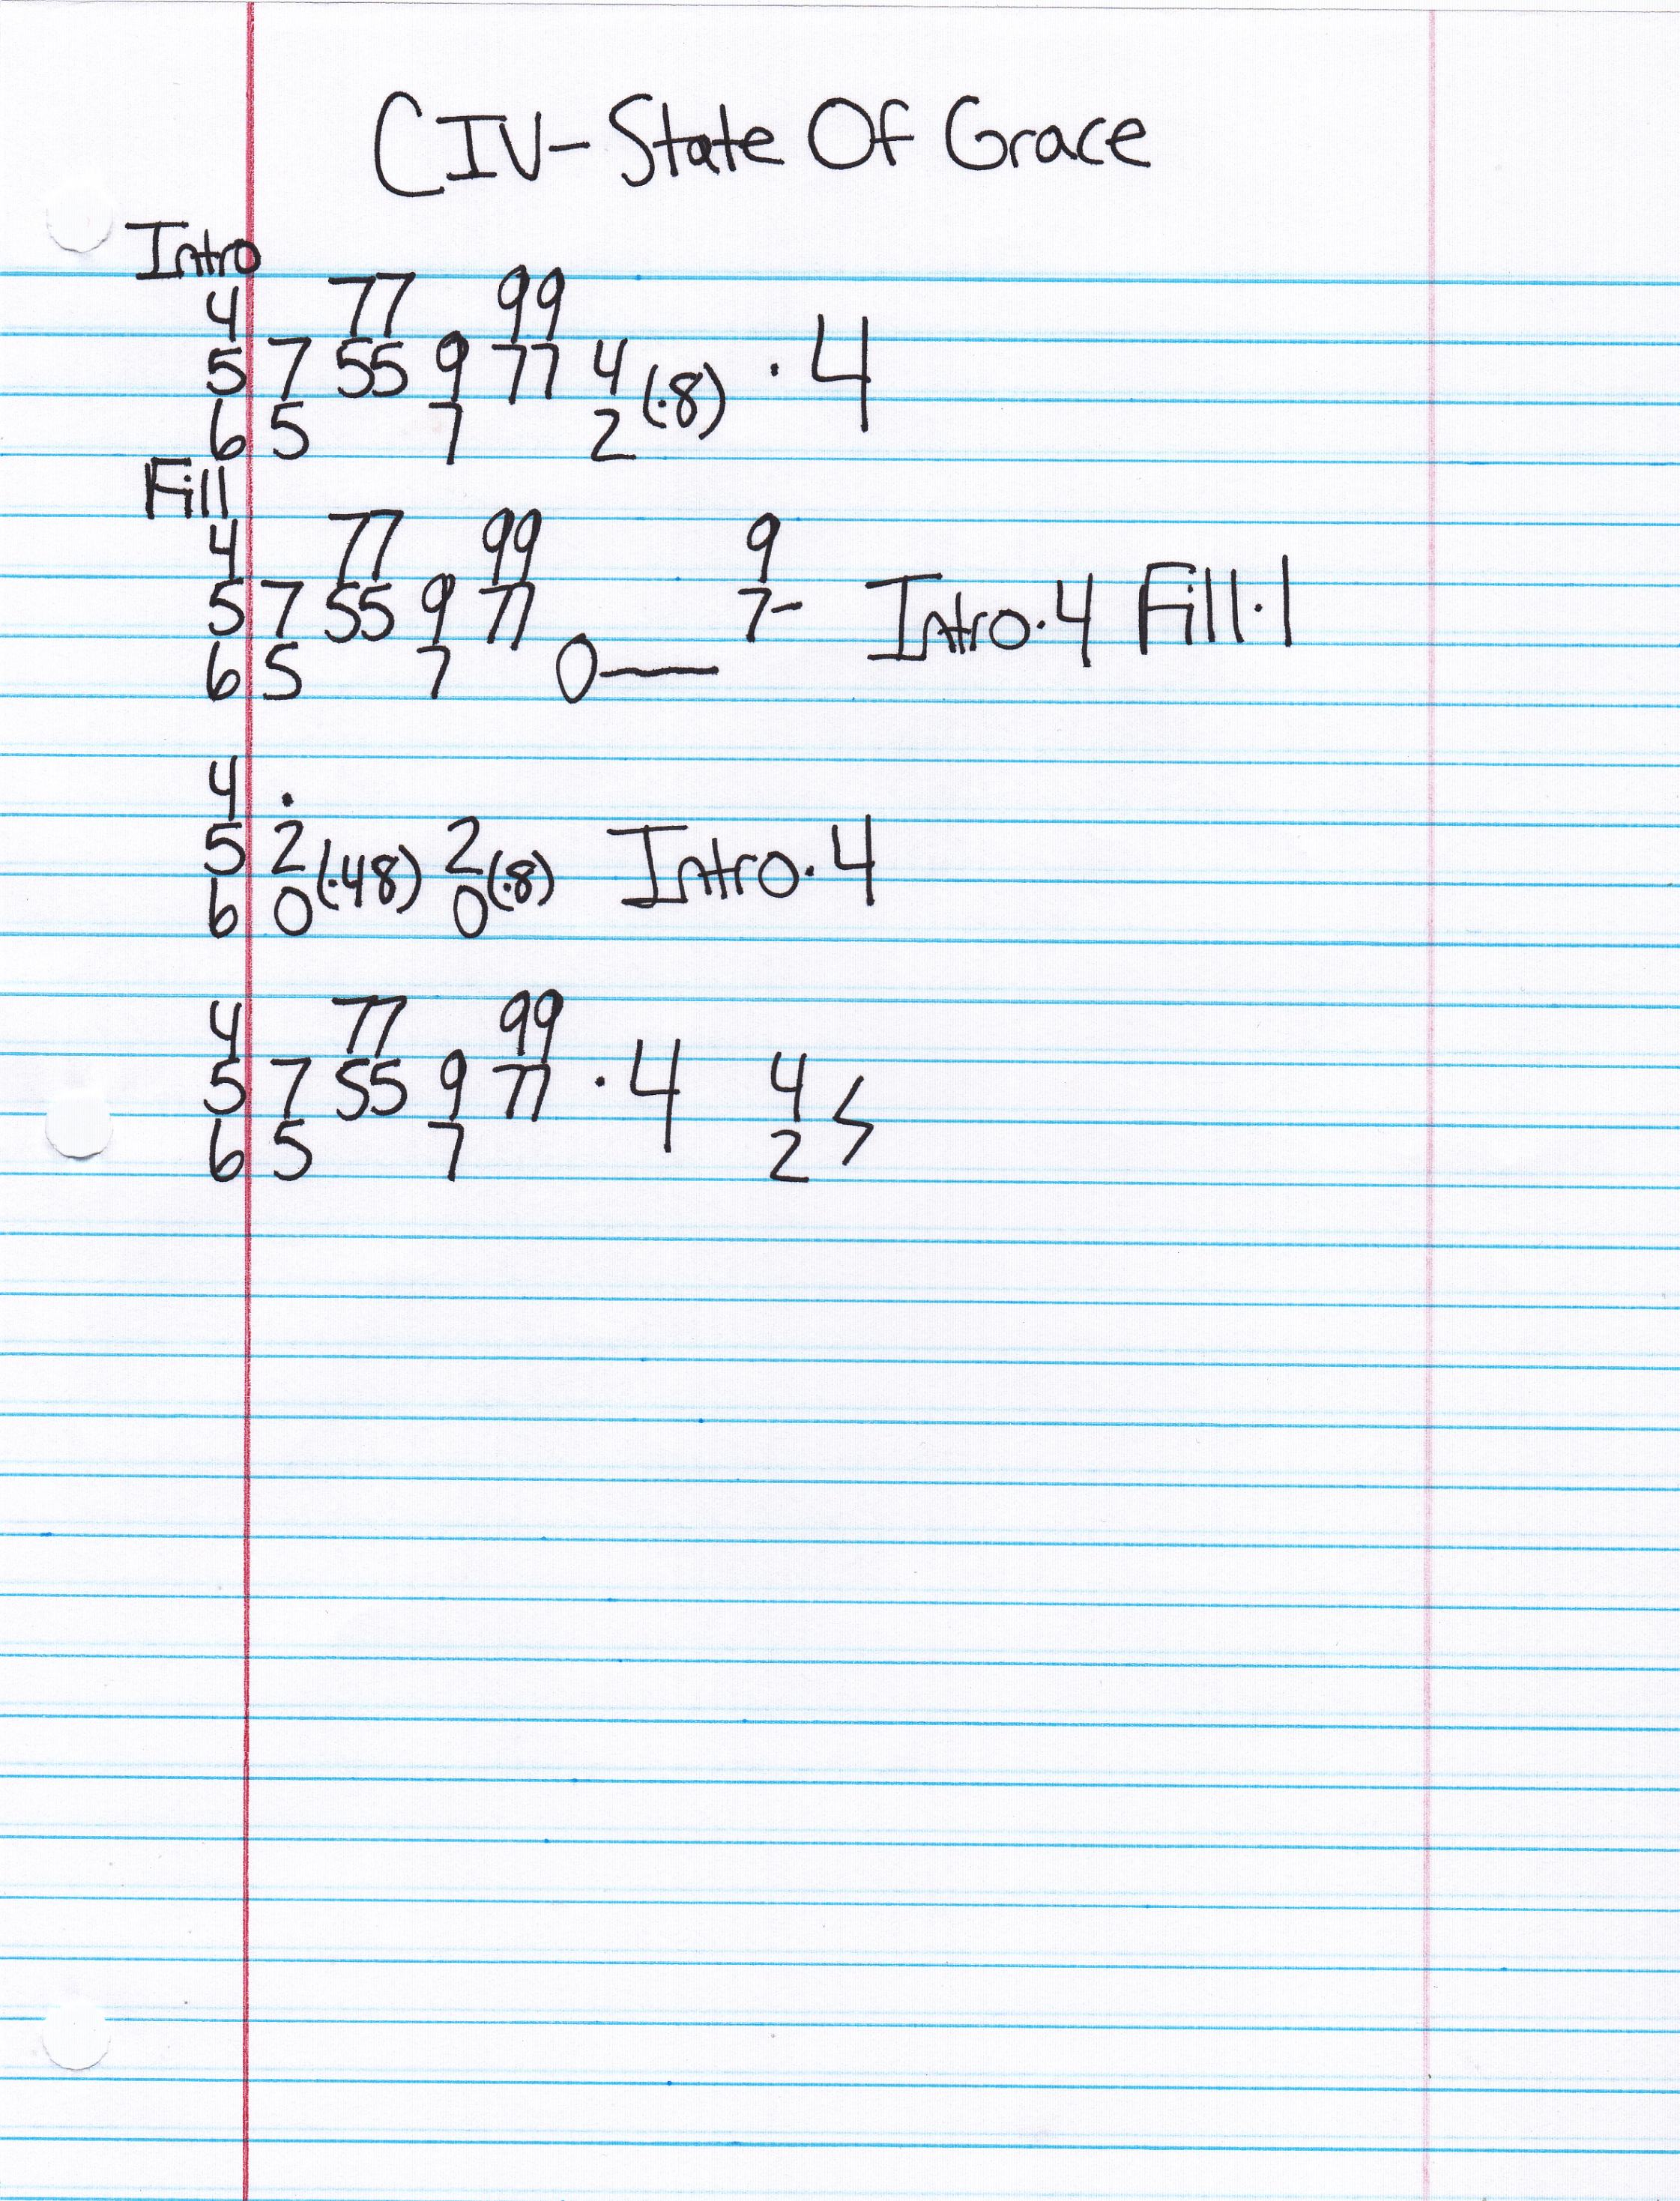 CIV-State Of Grace
Intro
4 77 99
5 7 55 9 77 4 (·8) · 4
6 5 7 2
Fill
4 77 99 9
5 7 55 9 77 7- Intro·4 Fill·1
6 5 7 0—
4 ·
5 2 (·48) 2 (·8) Intro·4
6 0 0
4 77 99
5 7 55 9 77 · 4 4
6 5 7 2